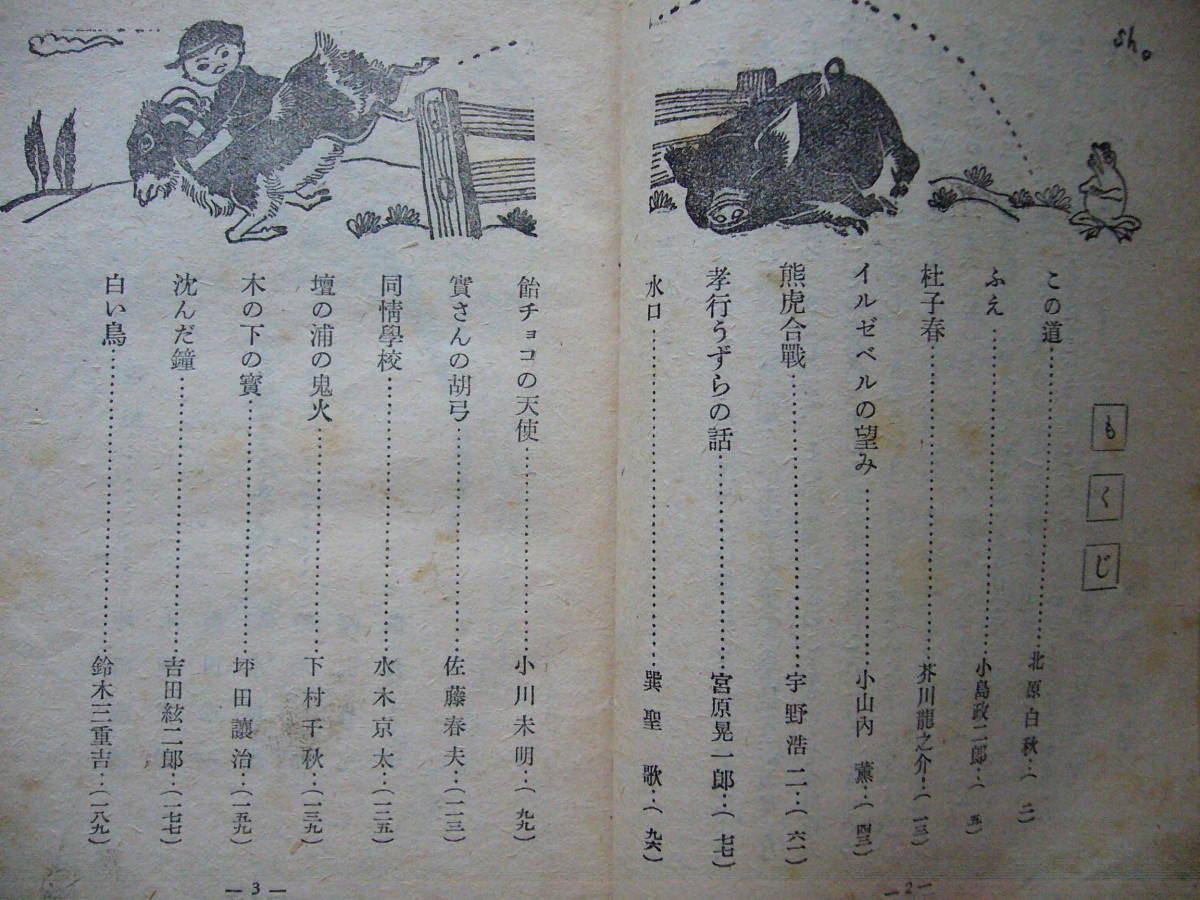 sh。
もくじ
この道………北原白秋…（二）
ふえ………小島政二郎…（五）
杜子春………芥川龍之介…（一三）
イルゼベルの望み………小山內薫…（四三）
熊虎合戰………宇野浩二…（六一）
孝行うずらの話………宮原晃一郎…（七七）
水口………巽聖歌…（九六）
飴チョコの天使………小川未明…（九九）
實さんの胡弓………佐藤春夫…（一一三）
同情學校………水木京太…（一二五）
壇の浦の鬼火………下村千秋…（一三九）
木の下の寳………坪田讓治…（一五九）
沈んだ鐘………吉田絃二郎…（一七七）
白い鳥………鈴木三重吉…（一八九）
— 2 —
— 3 —